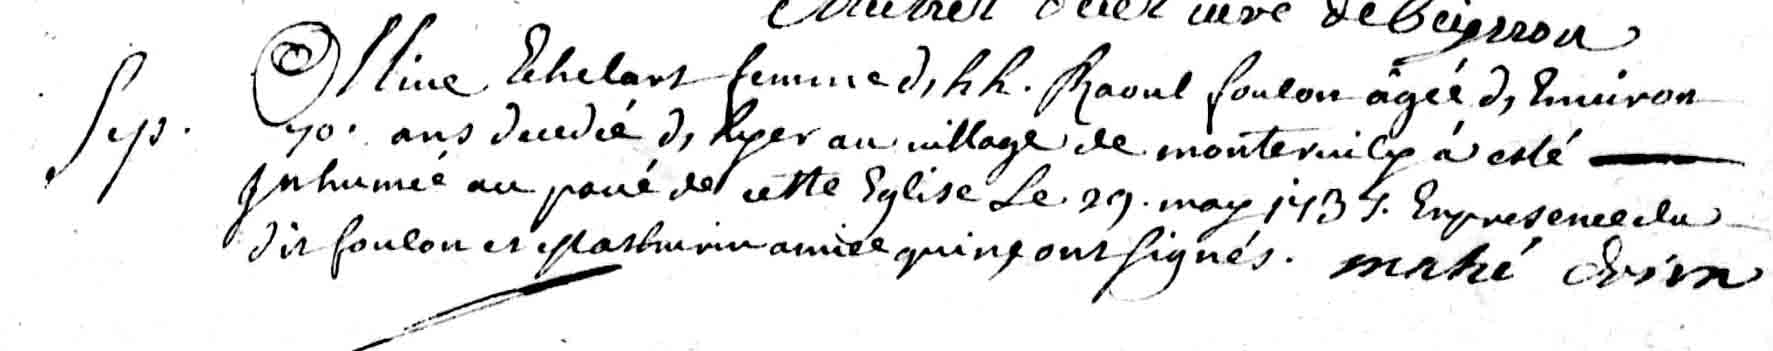 curé de Beignon
Olive Echelart femme d, hh. Raoul foulon âgéé d, Environ
Sep. 70. ans decedié d, hyer au village de monterneily á esté
Jnhumeé au pavé de cette Eglise Le 29. may 1735. En presence du
dit foulon et Mathurin amice qui ne ont signés. mahé